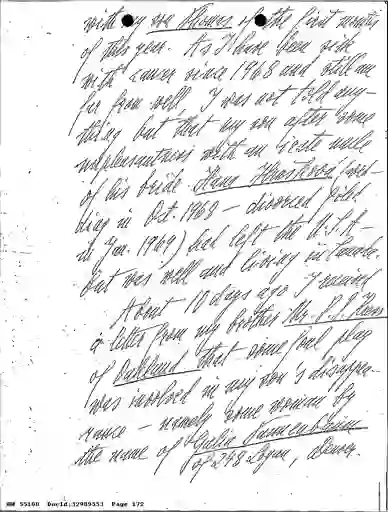 with my son Thomas of the first months
of this year. As I have been sick
with cancer since 1968 and still am
far from well, I was not told any-
thing but that my son after some
unpleasantness with an
of his bride (wed-
ding in Oct. 1968 — divorced
in Jan. 1969) had left the U.S.A.
but was well and living in Canada.
About 10 days ago I received
a letter from my brother Mr. P. J.
of Oakland that some foul play
was involved in my son's disappea-
rance — namely some woman by
the name of Tannenbaum
of 248 Logan, Denver.
HW 55160 DocId:32989553 Page 172